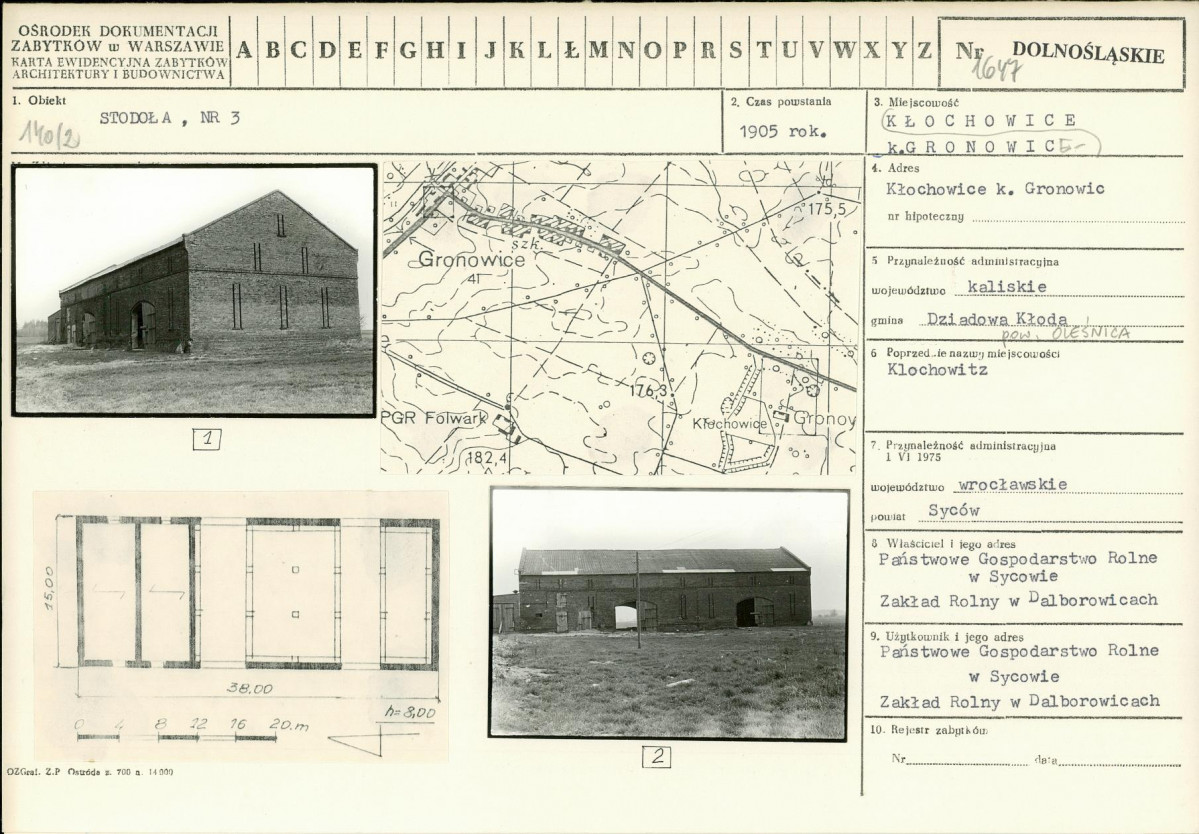 OŚRODEK DOKUMENTACJI
ZABYTKÓW w WARSZAWIE
KARTA EWIDENCYJNA ZABYTKÓW
ARCHITEKTURY I BUDOWNICTWA
A B C D E F G H I J K L Ł M N O P R S T U V W X Y Z
Nr DOLNOŚLĄSKIE
1647
1. Obiekt
STODOŁA, NR 3
140/2
2. Czas powstania
1905 rok.
3. Miejscowość
KŁOCHOWICE
k.GRONOWIC
4. Adres
Kłochowice k. Gronowic
nr hipoteczny
5 Przynależność administracyjna
województwo kaliskie
gmina Dziadowa Kłoda
pow. OLEŚNICA
6 Poprzednie nazwy miejscowości
Klochowitz
7. Przynależność administracyjna
1 VI 1975
województwo wrocławskie
powiat Syców
8 Właściciel i jego adres
Państwowe Gospodarstwo Rolne
w Sycowie
Zakład Rolny w Dalborowicach
9. Użytkownik i jego adres
Państwowe Gospodarstwo Rolne
w Sycowie
Zakład Rolny w Dalborowicach
10. Rejestr zabytków
Nr data
175,5
szk.
Gronowice
41
176,3
PGR Folwark
Kłochowice
Gronow
182,4
1
15,00
38,00
h=8,00
0 4 8 12 16 20 m
2
OZGraf. Z.P Ostróda z. 700 n. 14 000